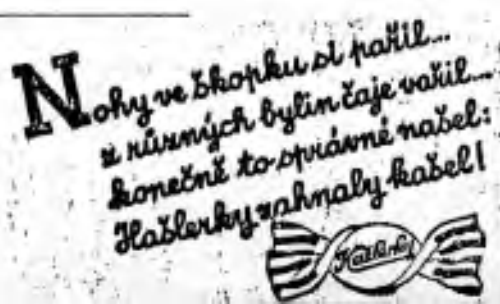 Nohy ve škopku si pařil...
z různých bylin čaje vařil...
konečně to správné našel:
Hašlerky zahnaly kašel!
Hašlerky